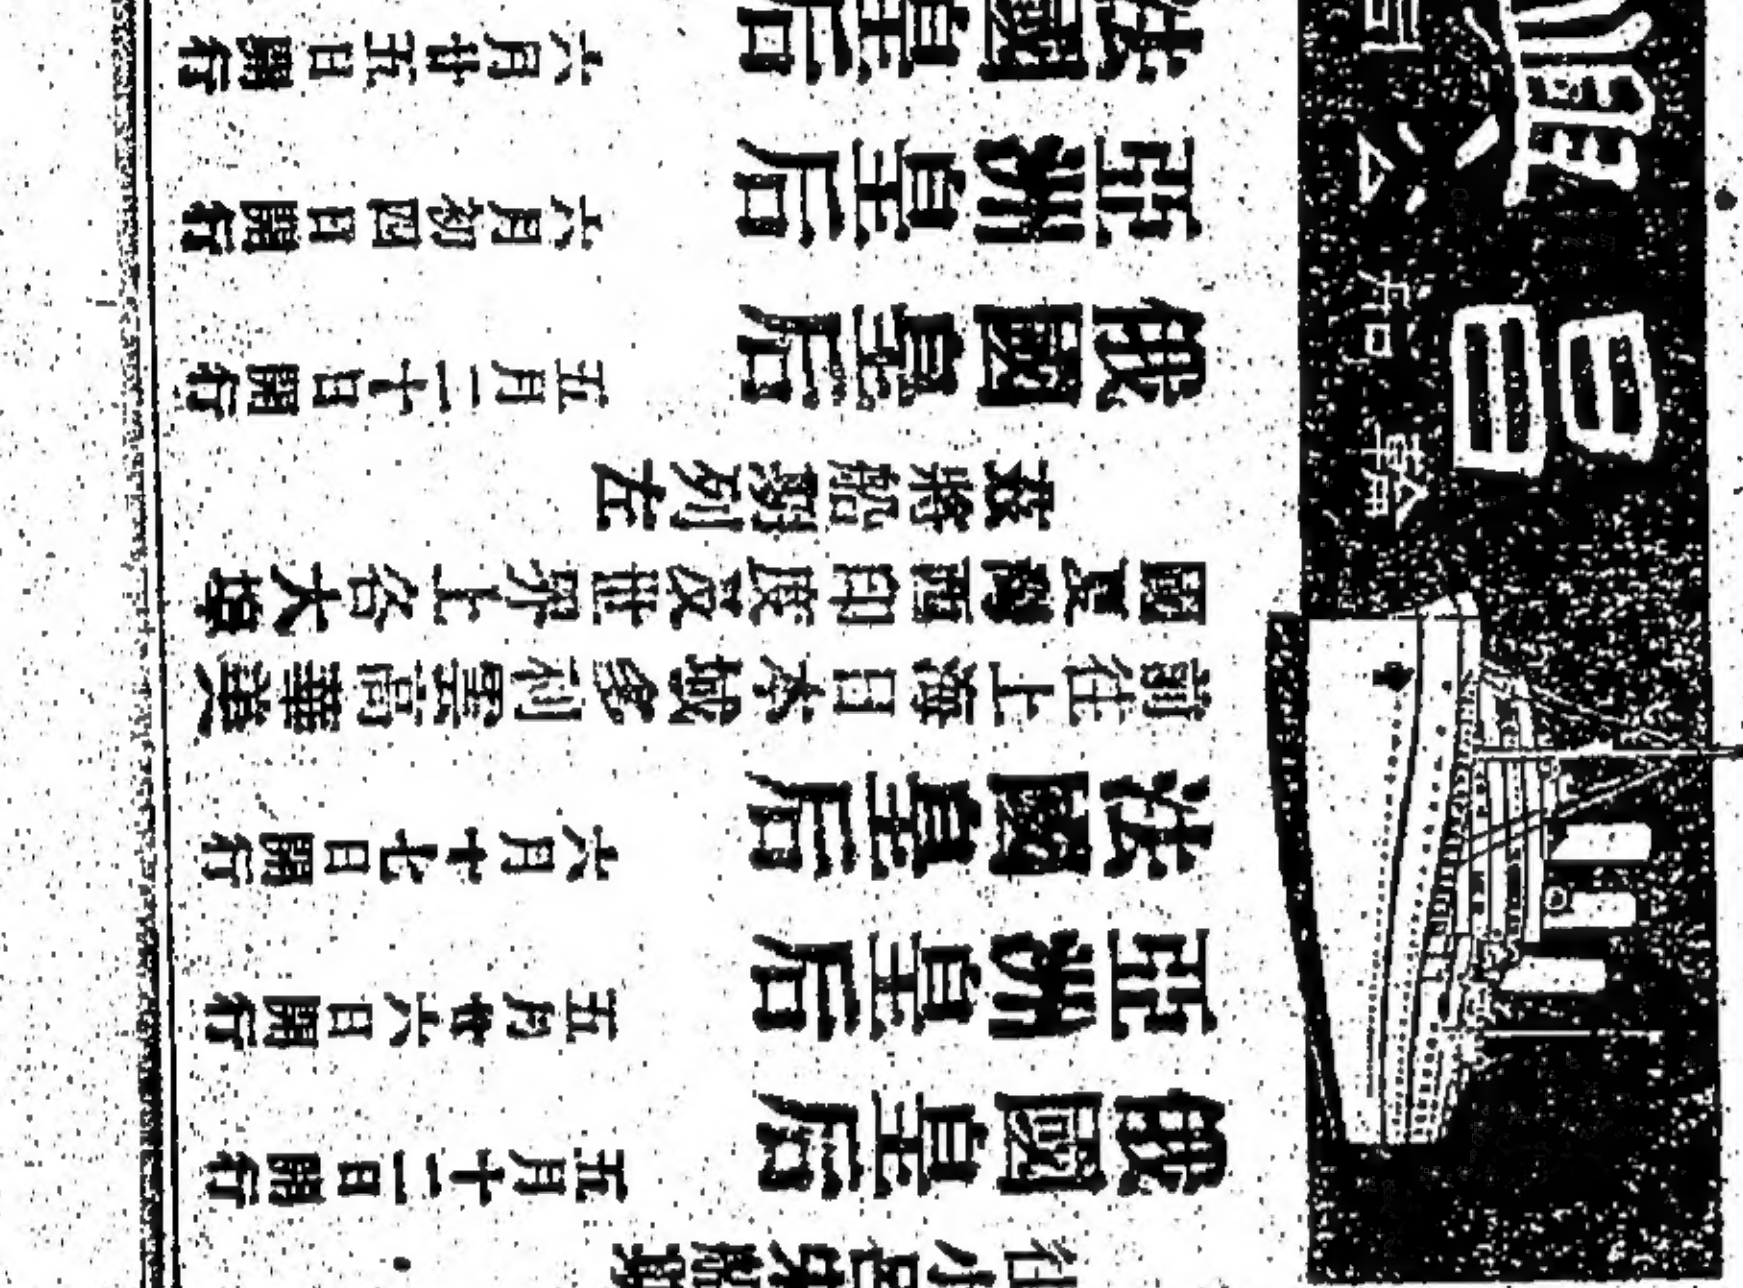 往小呂宋船期
俄國皇后 五月十二日開行
亞洲皇后 五月廿六日開行
法國皇后 六月十七日開行
前往上海日本域多利雲高華美
國夏灣西印度及世界上各大埠
茲將船期列左
俄國皇后 五月二十日開行
亞洲皇后 六月初四日開行
法國皇后 六月廿五日開行
昌
輪船公司